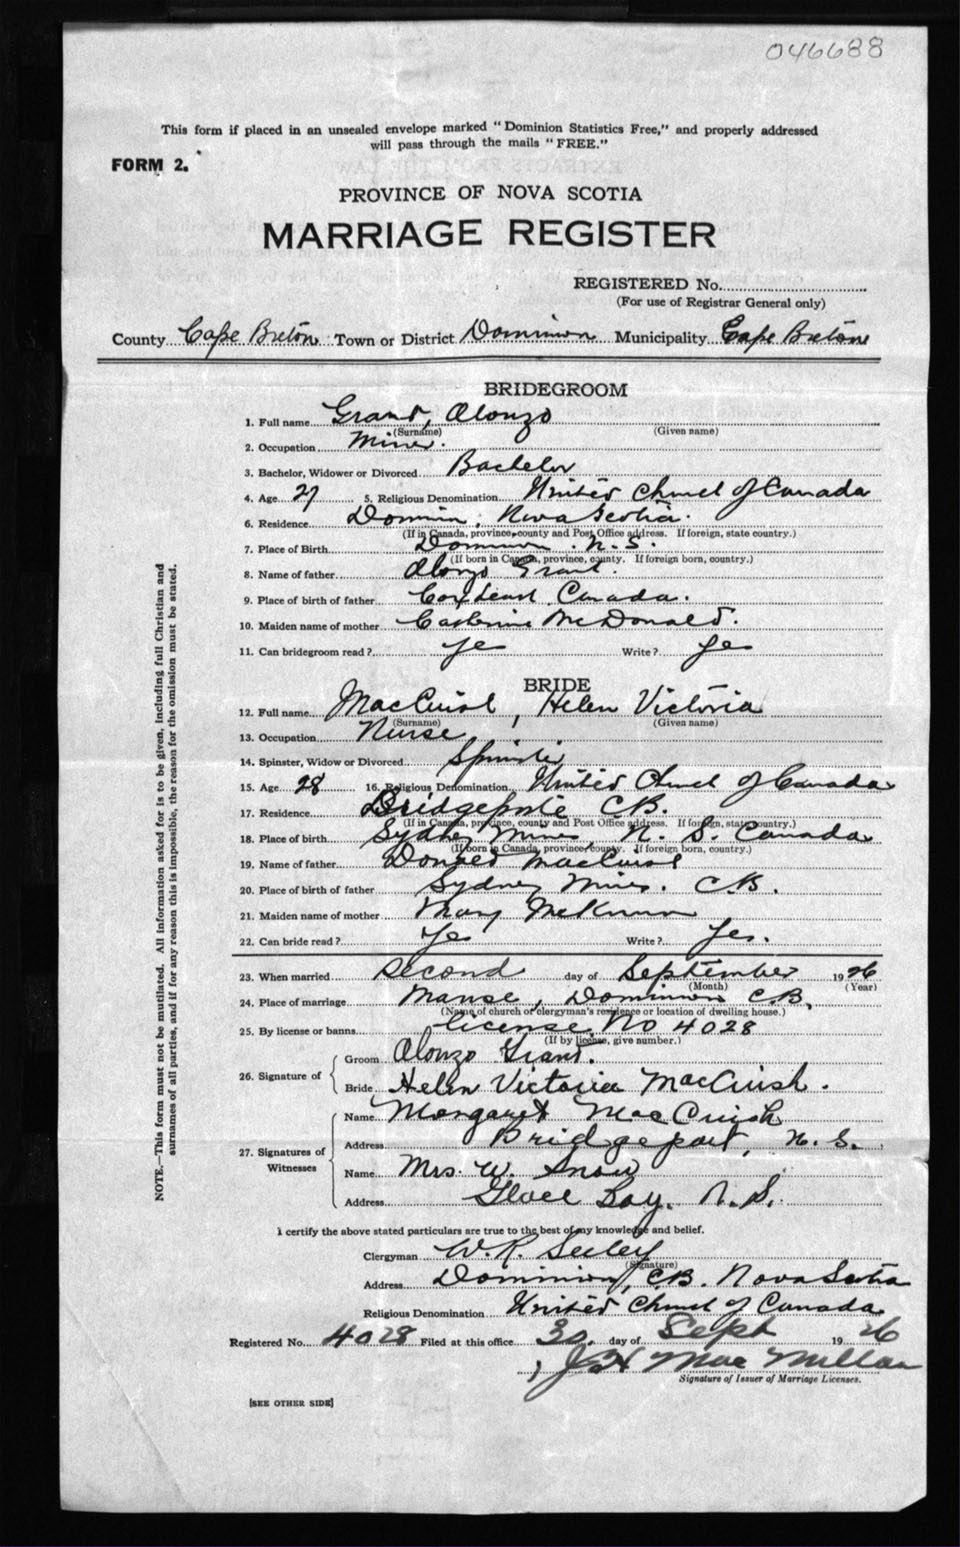 046688
This form if placed in an unsealed envelope marked "Dominion Statistics Free," and properly addressed
will pass through the mails "FREE."
FORM 2.
PROVINCE OF NOVA SCOTIA
MARRIAGE REGISTER
REGISTERED No.
(For use of Registrar General only)
County Cape Breton Town or District Dominion Municipality Cape Breton
BRIDEGROOM
1. Full name Grant, Alonzo
(Surname) (Given name)
2. Occupation Miner.
3. Bachelor, Widower or Divorced Bachelor
4. Age 27 5. Religious Denomination United Church of Canada
6. Residence Dominion, Nova Scotia.
(If in Canada, province, county and Post Office address. If foreign, state country.)
7. Place of Birth Dominion N.S.
(If born in Canada, province, county. If foreign born, country.)
8. Name of father Alonzo Grant.
9. Place of birth of father Coxheath Canada.
10. Maiden name of mother Catherine McDonald.
11. Can bridegroom read? Yes Write? Yes
BRIDE
12. Full name MacCuish, Helen Victoria
(Surname) (Given name)
13. Occupation Nurse
14. Spinster, Widow or Divorced Spinster
15. Age 28 16. Religious Denomination United Church of Canada
17. Residence Bridgeporte C.B.
(If in Canada, province, county and Post Office address. If foreign, state country.)
18. Place of birth Sydney Mines N. S. Canada
(If born in Canada, province, county. If foreign born, country.)
19. Name of father Donald MacCuish
20. Place of birth of father Sydney Mines. C.B.
21. Maiden name of mother Mary McKinnon
22. Can bride read? Yes Write? Yes.
23. When married Second day of September 1926
(Month) (Year)
24. Place of marriage Manse, Dominion C.B.
(Name of church or clergyman's residence or location of dwelling house.)
25. By license or banns license No 4028
(If by license, give number.)
26. Signature of Groom Alonzo Grant.
Bride Helen Victoria MacCuish.
27. Signatures of Witnesses Name Margaret MacCuish
Address Bridgeport, N.S.
Name Mrs. W. Snow
Address Glace Bay. N.S.
I certify the above stated particulars are true to the best of my knowledge and belief.
Clergyman W.R. Seeley
(Signature)
Address Dominion, C.B. Nova Scotia
Religious Denomination United Church of Canada
Registered No. 4028 Filed at this office 30. day of Sept 1926
J H MacMillan
Signature of Issuer of Marriage Licenses.
[SEE OTHER SIDE]
NOTE.—This form must not be mutilated. All information asked for is to be given, including full Christian and
surnames of all parties, and if for any reason this is impossible, the reason for the omission must be stated.